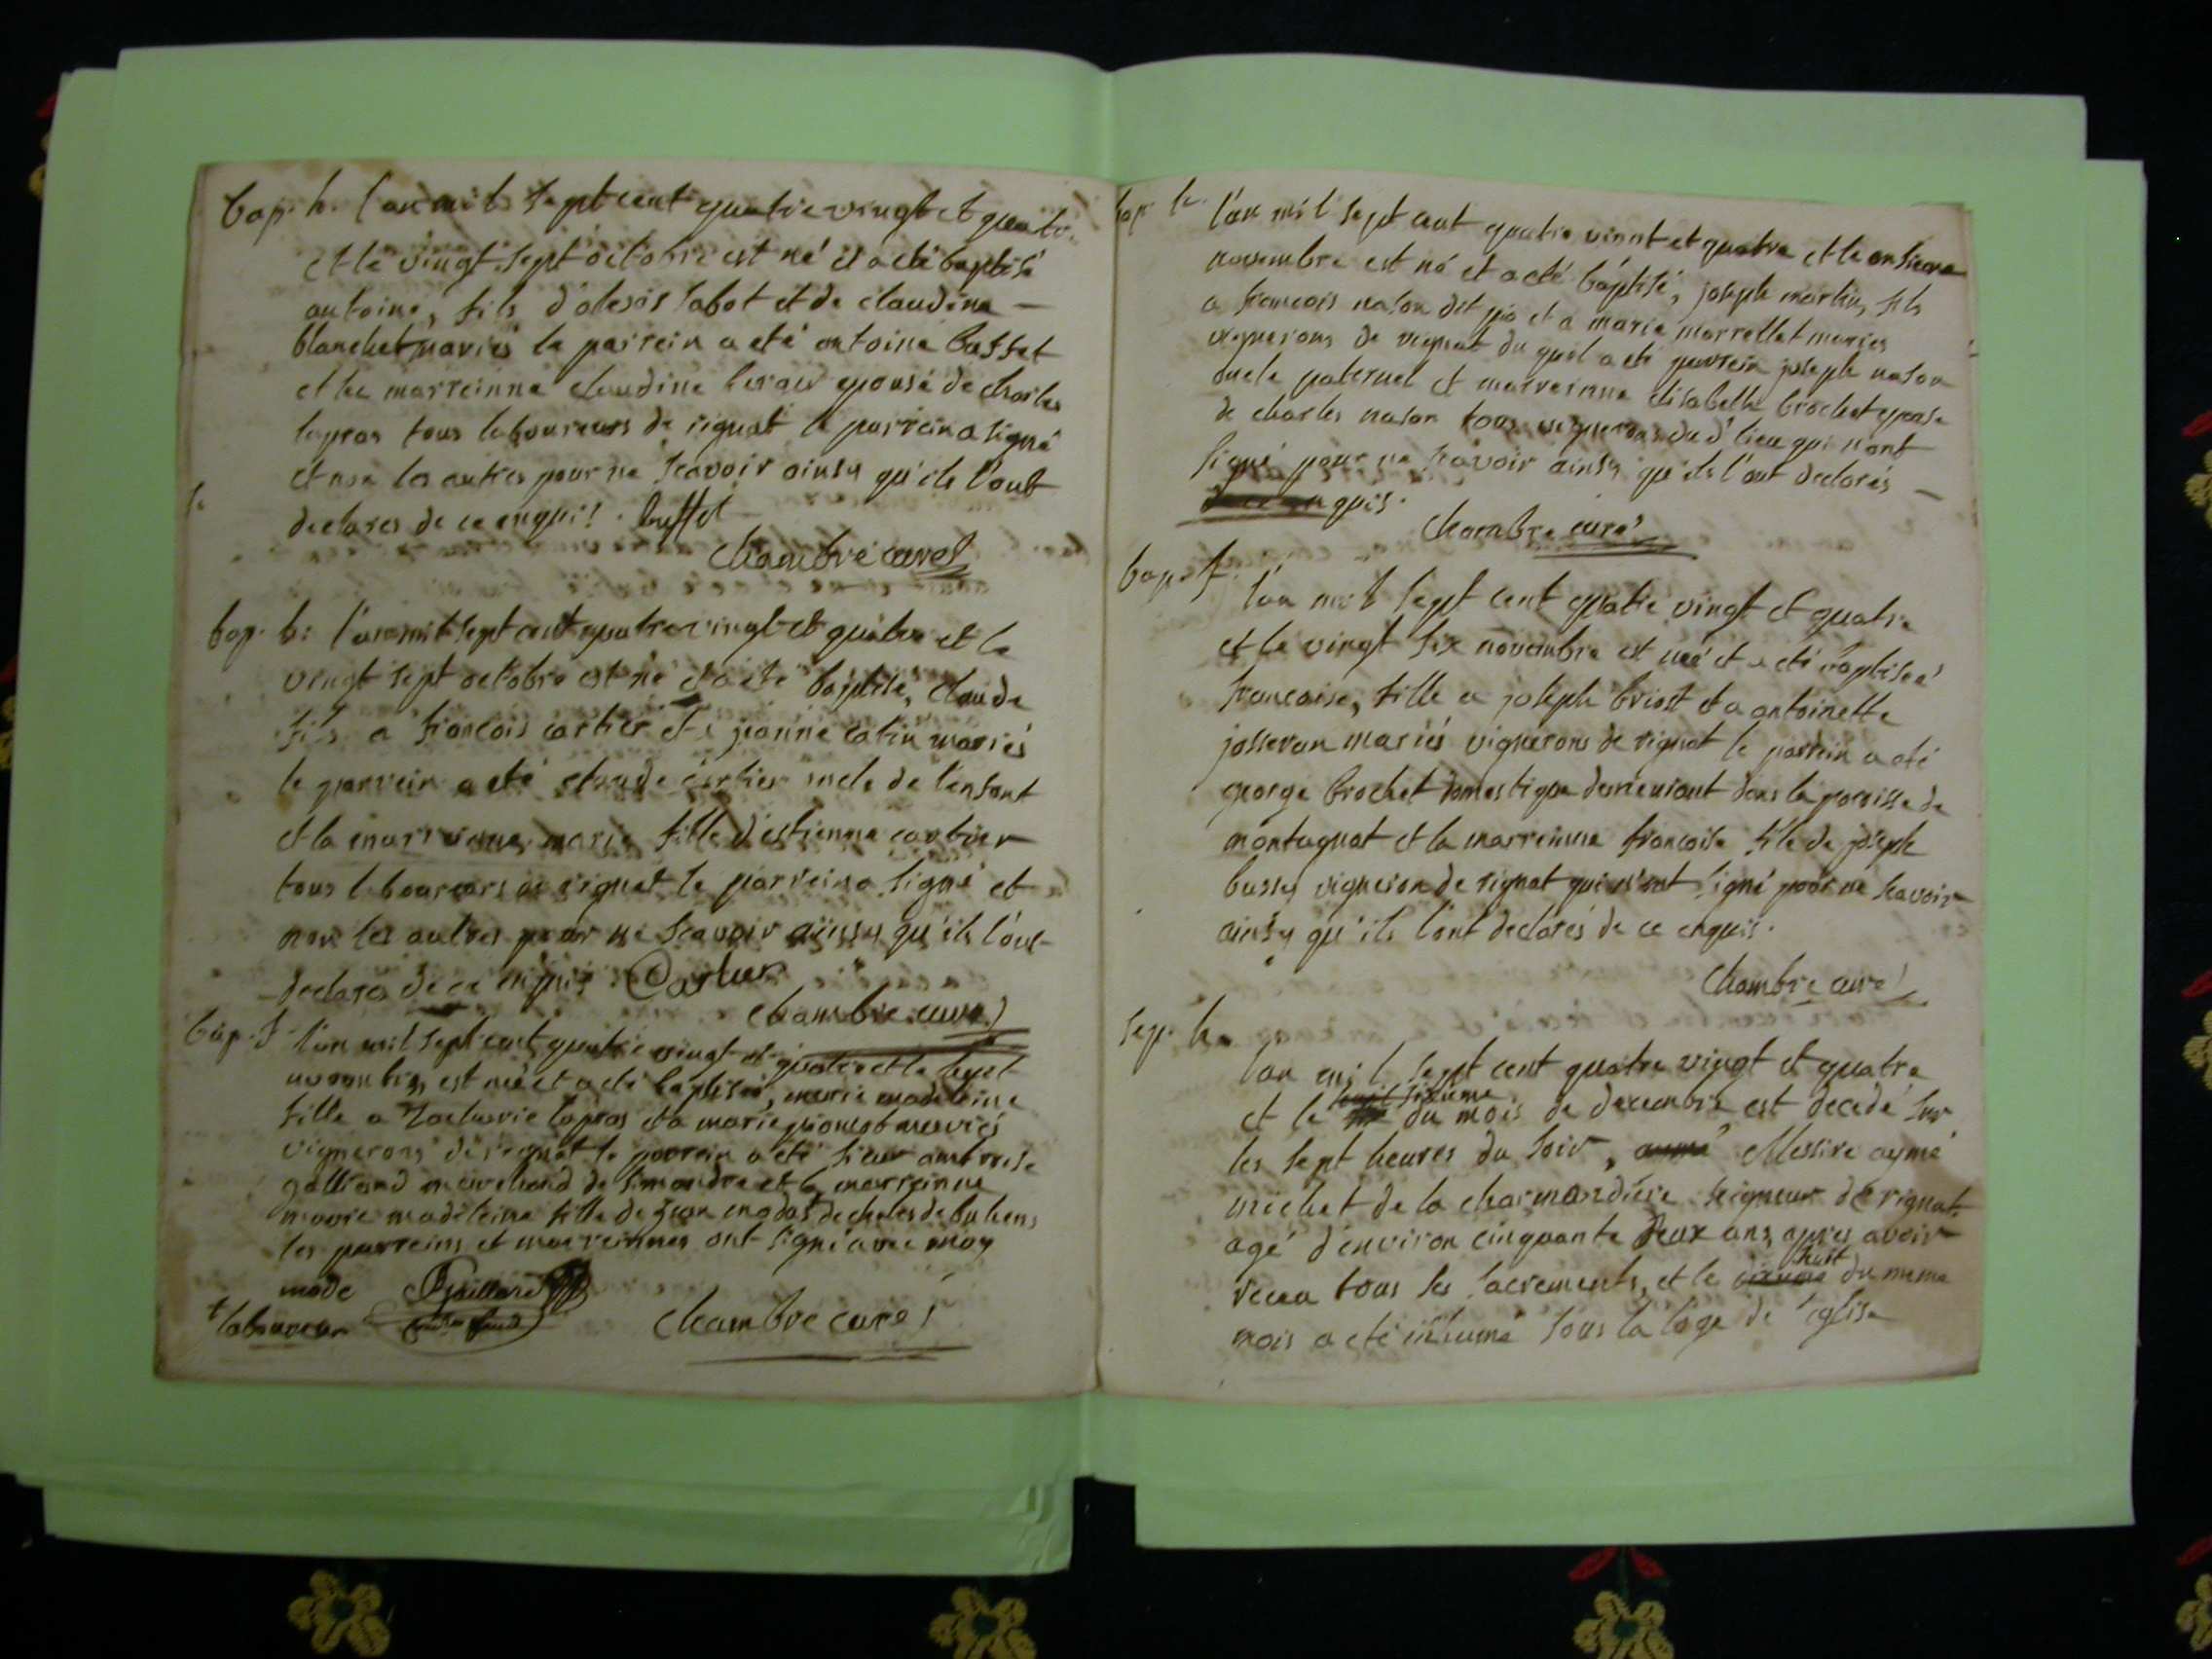 bap. h. l'an mil sept cent quatre vingt et quatr.
et le vingt sept octobre est né et a eté baptisé
antoine, fils d'alexis sabot et de claudine
blanchet mariés le parrein a eté antoine buffet
et la marreinne claudine epouse de charles
lapras tous laboureurs de rignat le parrein a signé
et non les autres pour ne scavoir ainsy qu'ils l'ont
declarés de ce enquis. buffet
chambre curé
bap. h: l'an mil sept cent quatre vingt et quatre et le
vingt sept octobre est né et a eté baptisé, claude
fils a francois cartier et a jeanne catin mariés
le parrein a eté claude cartier oncle de l'enfant
et la marreinne marie fille d'estienne cartier
tous laboureurs de rignat le parrein a signé et
non les autres pour ne scavoir ainsy qu'ils l'ont
declarés de ce enquis Cartier
chambre curé
bap. f. l'an mil sept cent quatre vingt et quatre et le sept
novembre, est née et a eté baptisée, marie madeleine
fille a Zacharie lapras et a marie mariés
vignerons de rignat le parrein a eté sieur ambroise
galliand marchand de simandre et la marreinne
marie madeleine fille de jean de
les parreins et marreinnes ont signé avec moy
made
+ laboureur
chambre curé
bap. h. l'an mil sept cent quatre vingt et quatre et le onsieme
novembre est né et a eté baptisé, joseph marlin, fils
a francois nason dit pio et a marie marrellet mariés
vignerons de rignat du quel a eté parrein joseph nason
oncle paternel et marreinne elisabeth brochet epouse
de charles nason tous vignerons du d' lieu qui n'ont
signé pour ne scavoir ainsy qu'ils l'ont declarés
de ce enquis.
chambre curé
bap. f. l'an mil sept cent quatre vingt et quatre
et le vingt six novembre est née et a eté baptisée
francoise, fille a joseph briost et a antoinette
josseran mariés vignerons de rignat le parrein a eté
george brochet domestique demeurant dans la paroisse de
montagnat et la marreinne francoise fille de joseph
bussy vigneron de rignat qui n'ont signé pour ne scavoir
ainsy qu'ils l'ont declarés de ce enquis.
chambre curé
sep. h.
l'an mil sept cent quatre vingt et quatre
et le sixieme du mois de decembre est decedé sur
les sept heures du soir, aymé Messire aymé
michet de la charmondiere seigneur de rignat
agé d'environ cinquante deux ans apres avoir
receu tous les sacrements, et le huit du meme
mois a eté inhumé sous la loge de l'eglise